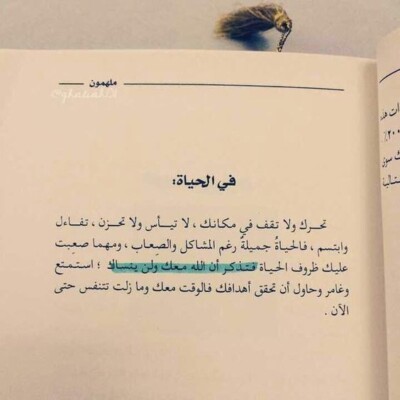 ملهمون
في الحياة:
تحرك ولا تقف في مكانك ، لا تيأس ولا تحزن ، تفاءل
وابتسم ، فالحياةُ جميلةٌ رغم المشاكل والصِعاب ، ومهما صعِبت
عليك ظروف الحياة فتذكر أن الله معك ولن ينساك ؛ استمتع
وغامر وحاول أن تحقق أهدافك فالوقت معك وما زلت تتنفس حتى
الآن .
ات هذه
٢٠٠٪
ك سوى